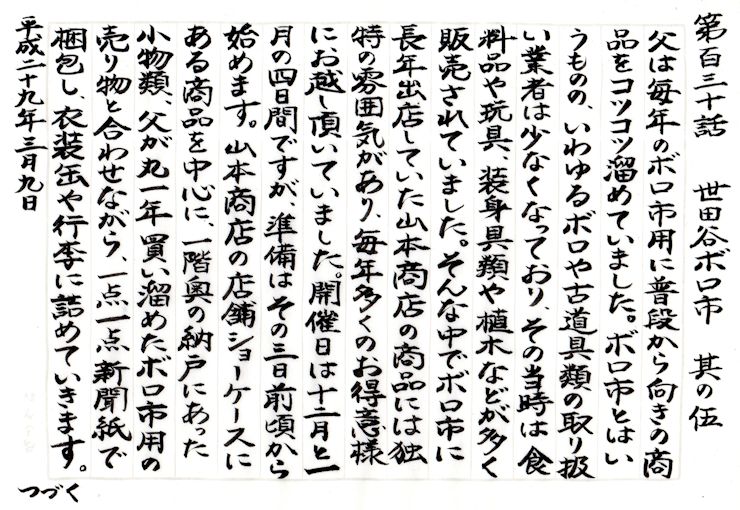 第百三十話　世田谷ボロ市　其の伍
父は毎年のボロ市用に普段から向きの商
品をコツコツ溜めていました。ボロ市とはい
うものの、いわゆるボロや古道具類の取り扱
い業者は少なくなっており、その当時は食
料品や玩具、装身具類や植木などが多く
販売されていました。そんな中でボロ市に
長年出店していた山本商店の商品には独
特の雰囲気があり、毎年多くのお得意様
にお越し頂いていました。開催日は十二月と一
月の四日間ですが、準備はその三日前頃から
始めます。山本商店の店舗ショーケースに
ある商品を中心に、一階奥の納戸にあった
小物類、父が丸一年買い溜めたボロ市用の
売り物と合わせながら、一点一点新聞紙で
梱包し、衣装缶や行李に詰めていきます。
平成二十九年三月九日
つづく